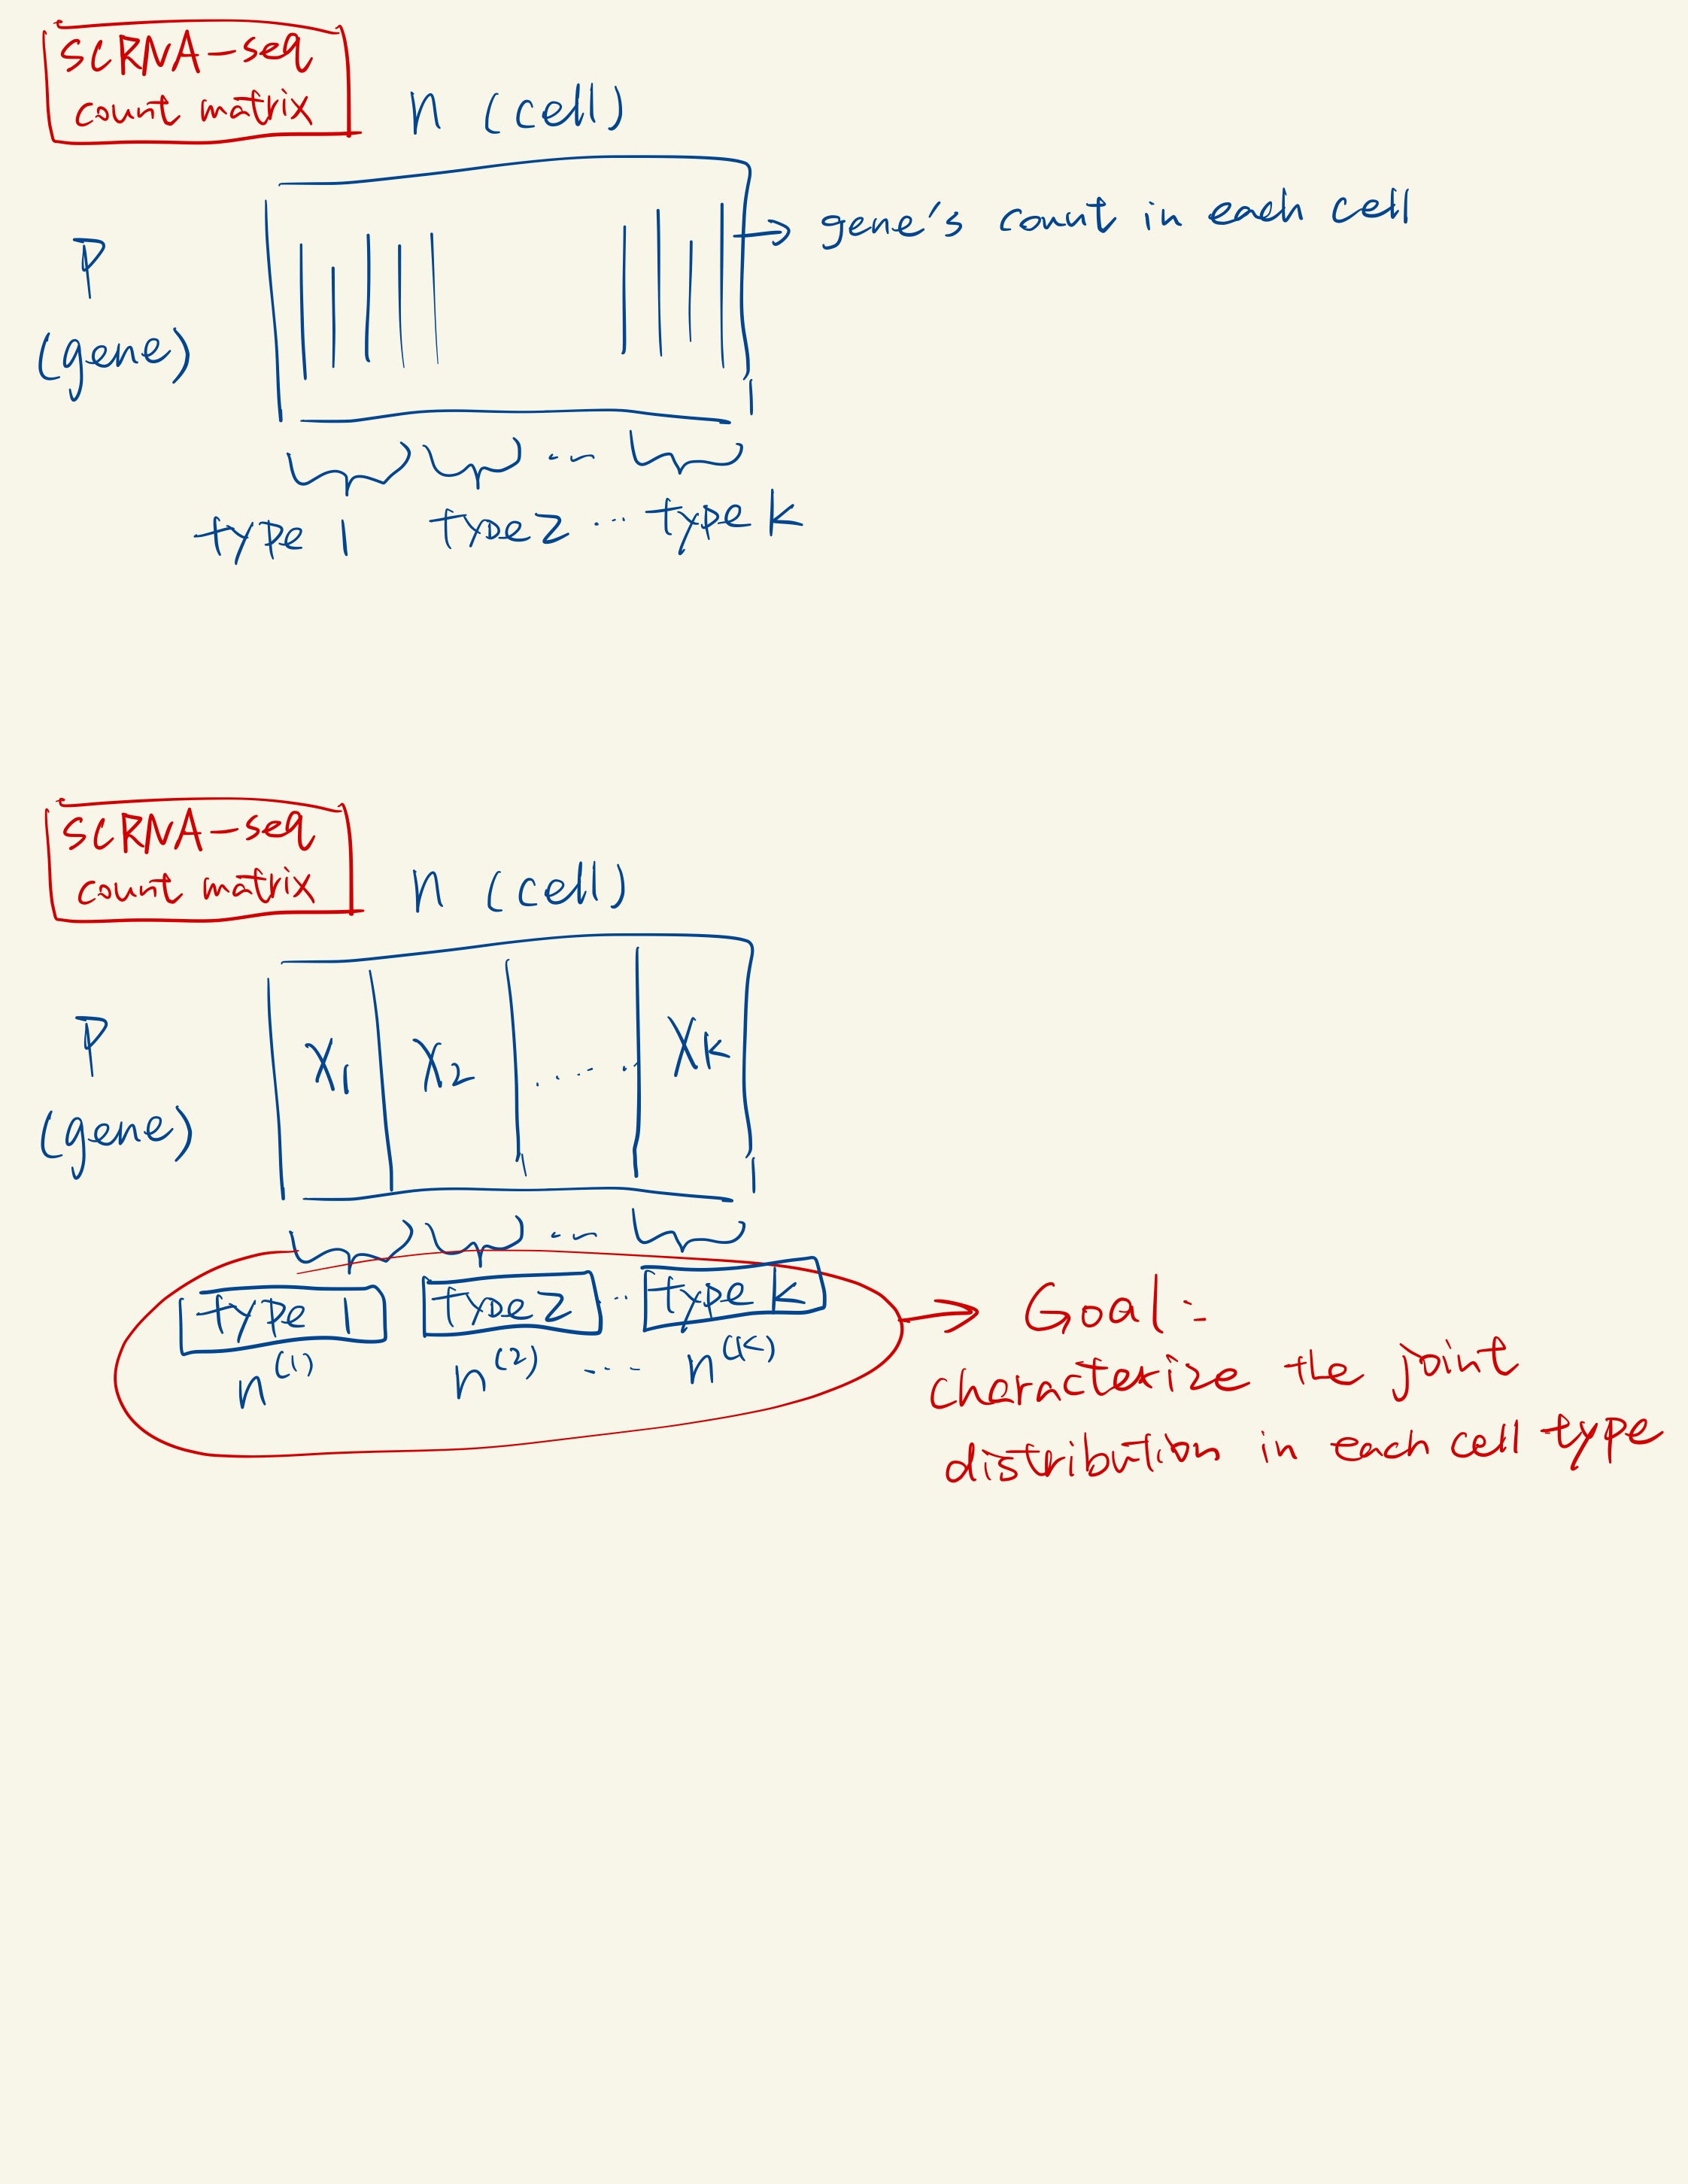 SCRNA-seq
count matrix
n (cell)
P
(gene)
→ gene's count in each cell
type 1 type 2 ... type k
SCRNA-seq
count matrix
n (cell)
P
(gene)
X₁ X₂ ...... Xk
type 1 type 2 ... type k
n⁽¹⁾ n⁽²⁾ ... n⁽ᴷ⁾
→ Goal:
characterize the joint
distribution in each cell type